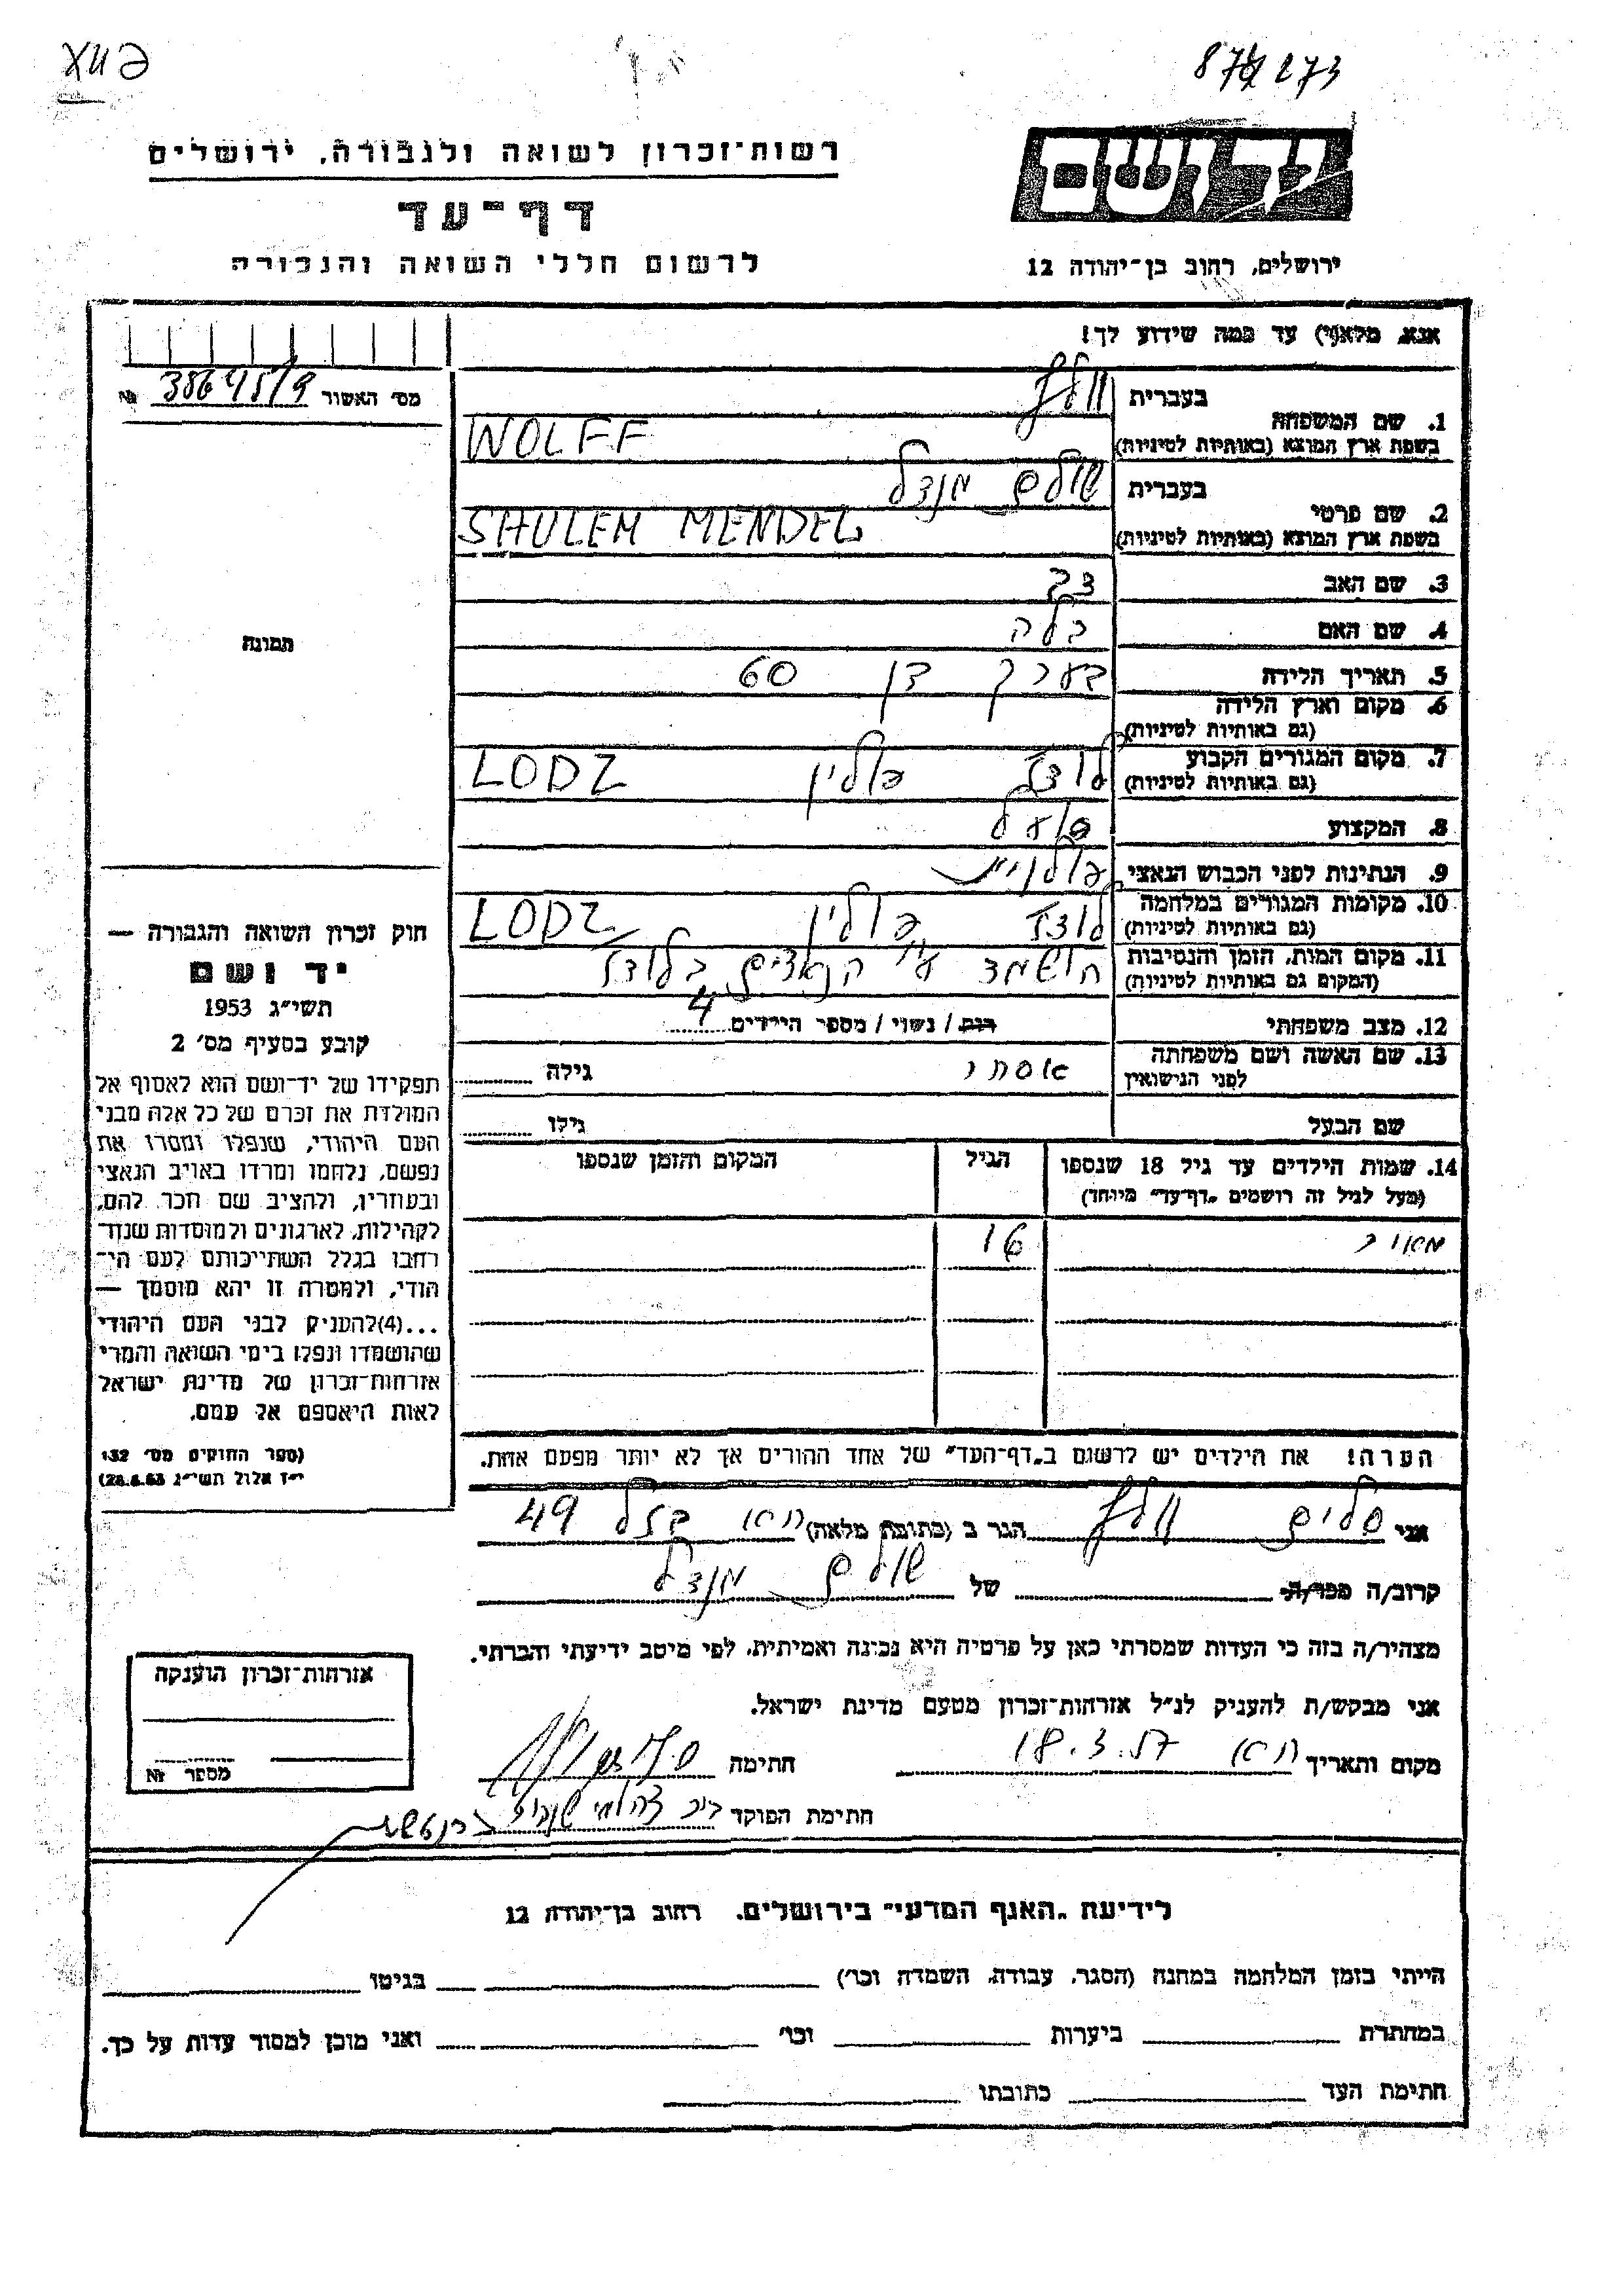 873273
רשות־זכרון לשואה ולגבורה, ירושלים
יד ושם
דף־עד
לרשום חללי השואה והגבורה
ירושלים, רחוב בן־יהודה 12
אנא, מלא(י) עד כמה שידוע לך!
מס׳ האשור № 386415/9
1. שם המשפחה
בעברית וולף
בשפת ארץ המוצא (באותיות לטיניות) WOLFF
2. שם פרטי
בעברית שולם מנדל
בשפת ארץ המוצא (באותיות לטיניות) SHULEM MENDEL
3. שם האב צבי
4. שם האם בלה
תמונה
5. תאריך הלידה בערך בן 60
6. מקום וארץ הלידה
(גם באותיות לטיניות)
7. מקום המגורים הקבוע לודז פולין LODZ
(גם באותיות לטיניות)
8. המקצוע פועל
9. הנתינות לפני הכבוש הנאצי פולנית
10. מקומות המגורים במלחמה לודז פולין LODZ
(גם באותיות לטיניות)
11. מקום המות, הזמן והנסיבות הושמד ע״י הנאצים בלודז
(המקום גם באותיות לטיניות)
12. מצב משפחתי רוק / נשוי / מספר הילדים 4
13. שם האשה ושם משפחתה אסתר גילה
לפני הנישואין
שם הבעל גילו
14. שמות הילדים עד גיל 18 שנספו הגיל המקום והזמן שנספו
(מעל לגיל זה רושמים „דף־עד״ מיוחד)
מאיר 16
הערה! את הילדים יש לרשום ב„דף־העד״ של אחד ההורים אך לא יותר מפעם אחת.
חוק זכרון השואה והגבורה —
יד ושם
תשי״ג 1953
קובע בסעיף מס׳ 2
תפקידו של יד־ושם הוא לאסוף אל
המולדת את זכרם של כל אלה מבני
העם היהודי, שנפלו ומסרו את
נפשם, נלחמו ומרדו באויב הנאצי
ובעוזריו, ולהציב שם וזכר להם,
לקהילות, לארגונים ולמוסדות שנח־
רבו בגלל השתייכותם לעם הי־
הודי, ולמטרה זו יהא מוסמך —
...(4)להעניק לבני העם היהודי
שהושמדו ונפלו בימי השואה והמרי
אזרחות־זכרון של מדינת ישראל
לאות היאספם אל עמם.
(ספר החוקים מס׳ 132
י״ז אלול תשי״ג 28.8.53)
אני סלים וולף הגר ב (כתובת מלאה) 49
קרוב/ה מכר/ה של שולם מנדל
מצהיר/ה בזה כי העדות שמסרתי כאן על פרטיה היא נכונה ואמיתית, לפי מיטב ידיעתי והכרתי.
אני מבקש/ת להעניק לנ״ל אזרחות־זכרון מטעם מדינת ישראל.
מקום ותאריך 18.3.57 חתימה
חתימת הפוקד
אזרחות־זכרון הוענקה
מספר №
לידיעת „האגף המדעי״ בירושלים, רחוב בן־יהודה 12
הייתי בזמן המלחמה במחנה (הסגר, עבודה, השמדה וכו׳) בגיטו
במחתרת ביערות וכו׳ ואני מוכן למסור עדות על כך.
חתימת העד כתובתו